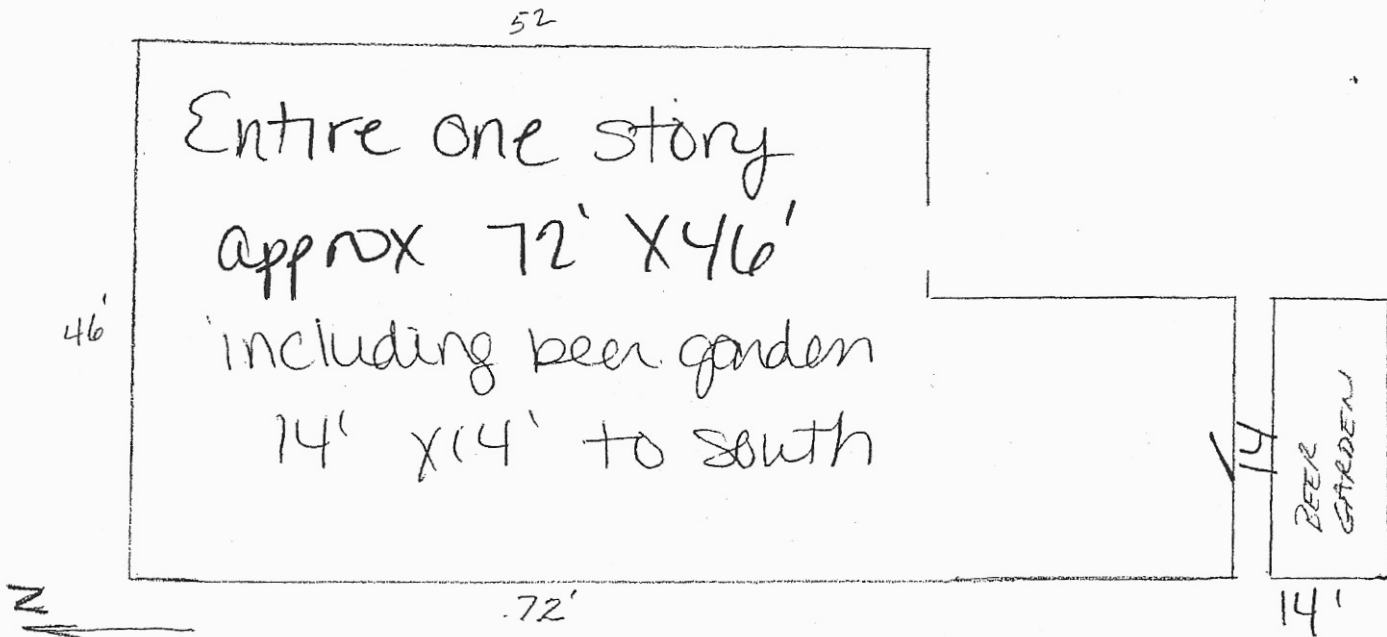 52
Entire one story
approx 72' X 46'
including beer garden
14' x 14' to south
46'
14
BEER
GARDEN
N
72'
14'